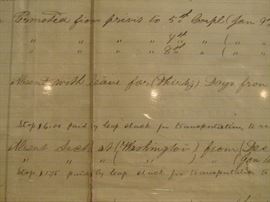 Promoted from privs to 5th Corpl (Jan 9
" " " 4th " " ( "
" " " 8th " " ( "
Absent with leave for (Thirty) Days from
Stop $6.00 paid by for transportation to
Absent Sick at (Washington) from (Dec
" " " " (Jan
Stop $1.75 paid by for transportation to